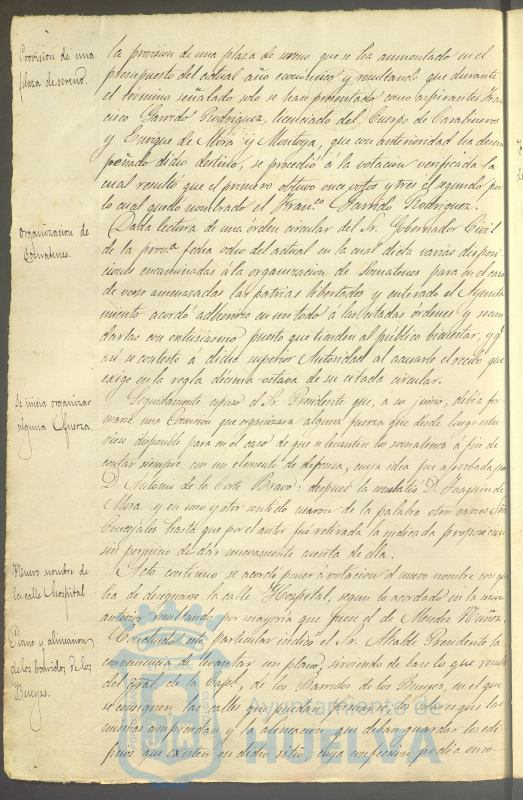 Provision de una
plaza de sereno.
la provision de una plaza de sereno que se ha aumentado en el
presupuesto del actual año economico y resultando que durante
el termino señalado solo se han presentado como aspirantes Fran
cisco Garrido Rodriguez, licenciado del Cuerpo de Carabineros
y Enrique de Mora y Montoya, que con anterioridad ha desem
peñado dicho destino, se procedió á la votacion verificada la
cual resultó que el primero obtuvo once votos y tres el segundo por
lo cual quedó nombrado el Fran.co Garrido Rodriguez.
Organizacion de
Somatenes.
Dada lectura de una orden circular del Sr. Gobernador Civil
de la prov.a fecha ocho del actual en la cual dicta varias disposi
ciones encaminadas á la organizacion de Somatenes para en el caso
de verse amenazadas las patrias libertades y enterado el Ayunta
miento acordó adherirse en un todo á las citadas órdenes y secun
darlas con entusiasmo puesto que tienden al público bienestar, y q.e
así se conteste á dicha superior Autoridad al acusarle el recibo que
exige en la regla décima octava de su citada circular.
Se inicia organizar
alguna fuerza.
Seguidamente espuso el Sr. Presidente que, á su juicio, debia for
marse una Comision que organizara alguna fuerza que desde luego estu
viese disponible para en el caso de que se levanten los somatenes á fin de
contar siempre con un elemento de defensa, cuya idea fue aprobada por
D. Antonio de la Corte Bravo: despues la combatió D. Joaquin de
Mora y en uno y otro sentido usaron de la palabra otros varios Sres
Concejales hasta que por el autor fué retirada la indicada proposicion
sin perjuicio de dar nuevamente cuenta de ella.
Nuevo nombre de
la calle Hospital
Acto continuo se acordó poner á votacion el nuevo nombre con que
ha de designarse la calle Hospital, segun lo acordado en la sesion
anterior resultando por mayoria que fuese el de Mendez Nuñez.
Plano y alineacion
de los barridos de los
Bueyes.
Concluido este particular indicó el Sr. Alcalde Presidente la
conveniencia de levantar un plano, sirviendo de base lo que resulta
del de la de los Barridos de los Bueyes, en el que
se consignen las calles que puedan formarse, las casas que las
mismas comprendan y la alineacion que deban guardar los edi
ficios que existen en dicho sitio, cuya confeccion podia enco-
Ayuntamiento de
HUELVA